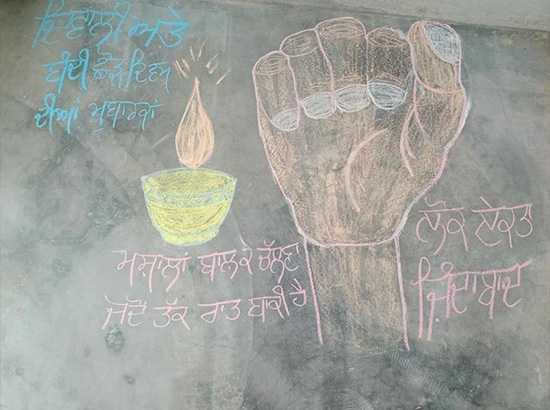 ਦਿਵਾਲੀ ਅਤੇ
ਬੰਦੀ ਛੋੜ ਦਿਵਸ
ਦੀਆਂ ਮੁਬਾਰਕਾਂ
ਮਸ਼ਾਲਾਂ ਬਾਲਕੇ ਚੱਲਣਾ
ਜਦੋਂ ਤੱਕ ਰਾਤ ਬਾਕੀ ਹੈ
ਲੋਕ ਏਕਤਾ
ਜ਼ਿੰਦਾਬਾਦ